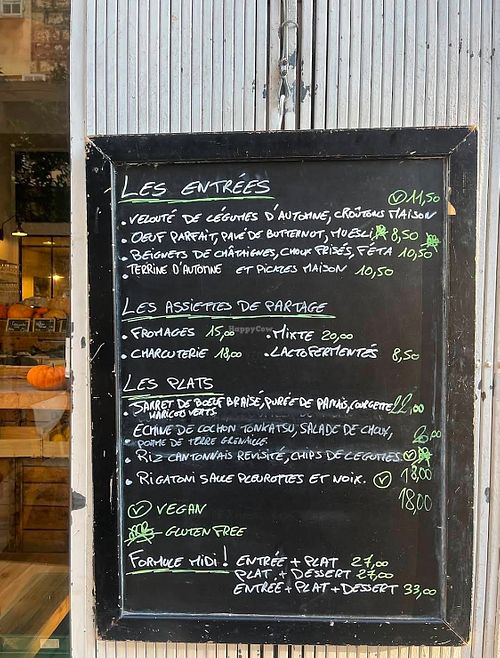 LES ENTRÉES
• VELOUTÉ DE LÉGUMES D'AUTOMNE, CROÛTONS MAISON 11,50
• OEUF PARFAIT, PAVÉ DE BUTTERNUT, MUESLI 8,50
• BEIGNETS DE CHÂTAIGNES, CHOUX FRISÉS, FÉTA 10,50
• TERRINE D'AUTOMNE ET PICKLES MAISON 10,50
LES ASSIETTES DE PARTAGE
• FROMAGES 15,00 • MIXTE 20,00
• CHARCUTERIE 18,00 • LACTOFERMENTÉS 8,50
LES PLATS
• JARRET DE BOEUF BRAISÉ, PURÉE DE PANAIS, COURGETTE 22,00
HARICOTS VERTS
• ECHINE DE COCHON TONKATSU, SALADE DE CHOUX, 20,00
POMME DE TERRE GRENAILLE
• RIZ CANTONNAIS REVISITÉ, CHIPS DE LEGUMES 18,00
• RIGATONI SAUCE PLEUROTTES ET NOIX. 18,00
V VEGAN
GLUTEN FREE
FORMULE MIDI ! ENTRÉE + PLAT 27,00
PLAT + DESSERT 27,00
ENTRÉE + PLAT + DESSERT 33,00
HappyCow